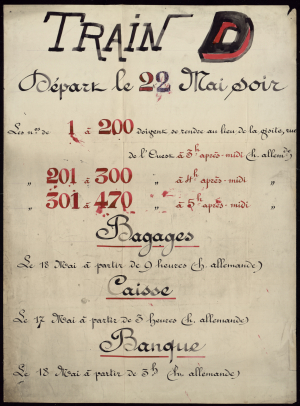 TRAIN D
Départ le 22 Mai soir
Les nos de 1 à 200 doivent se rendre au lieu de la visite, rue
de l'Ouest à 3h après-midi (h. allemde)
„ 201 à 300 „ à 4h après-midi „
„ 301 à 470 „ à 5h après-midi „
Bagages
Le 18 Mai à partir de 9 heures (h. allemande)
Caisse
Le 17 Mai à partir de 3 heures (h. allemande)
Banque
Le 18 Mai à partir de 3h (h. allemande)